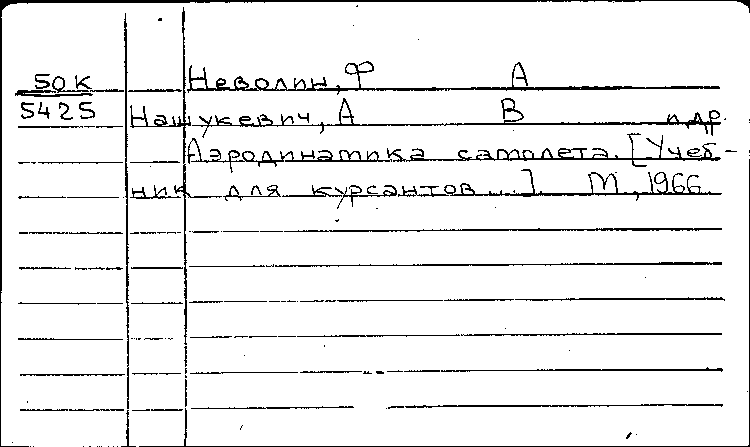 50К Неволин, Ф А
5425 Нашукевич, А В и др.
Аэродинамика самолета. [Учеб-
ник для курсантов...] М, 1966.